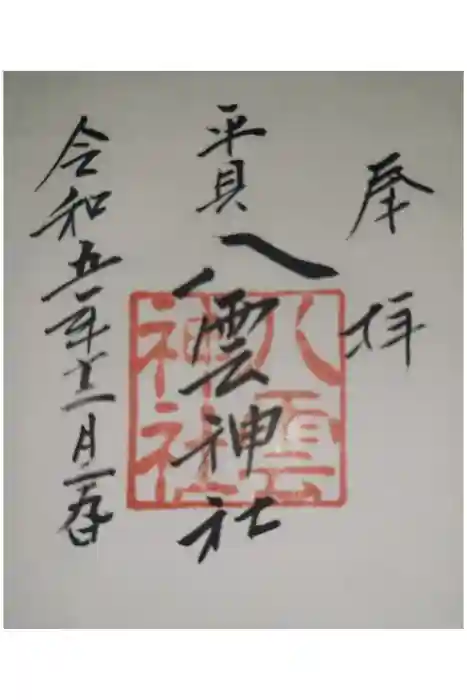 奉拝
平貝
八雲神社
八雲
神社
令和五年十二月